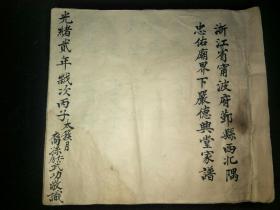 浙江省甯波府鄞縣西北隅
忠佑廟界下嚴德興堂家譜
光緒貳年歲次丙子太簇月
裔孫式功敬識